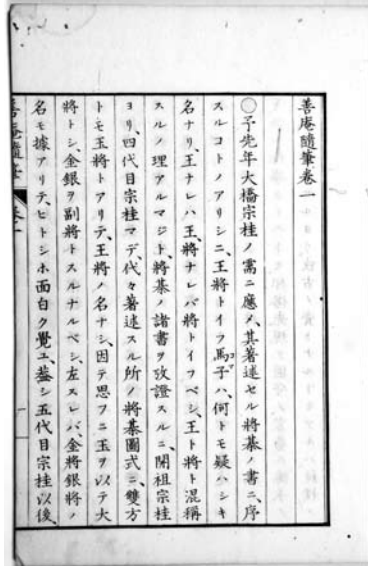 善庵隨筆卷一
〇予先年大橋宗桂ノ需ニ應メ、其著述セル將棊ノ書ニ、序
スルコトノアリシニ、王將トイフ馬子ハ、何トモ疑ハシキ
名ナリ、王ナレハ王、將ナレバ將トイフベシ、王ト將ト混稱
スルノ理アルマジト、將棊ノ諸書ヲ攷證スルニ、開祖宗桂
ヨリ、四代目宗桂マデ、代々著述スル所ノ將棊圖式ニ、雙方
トモ玉將トアリテ、王將ノ名ナシ、因テ思フニ玉ヲ以テ大
將トシ、金銀ヲ副將トスルナルベシ、左スレバ金將銀將ノ
名モ據アリテ、ヒトシホ面白ク覺ユ、蓋シ五代目宗桂以後、